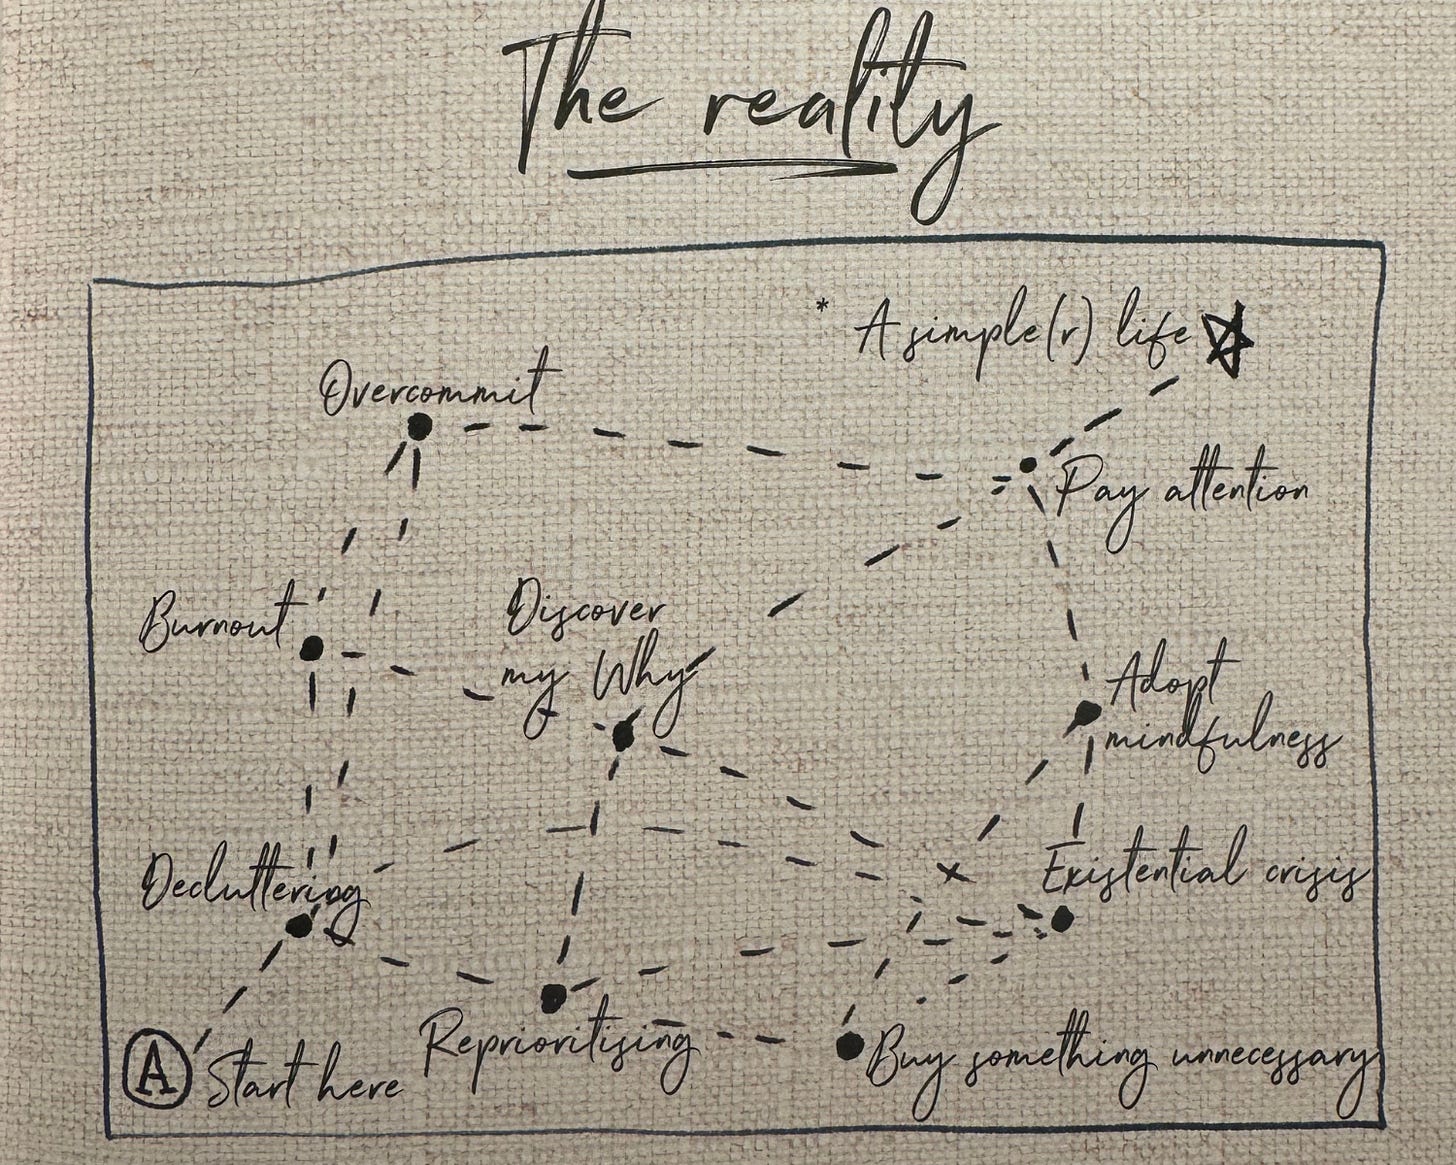 The reality
* A simple(r) life
Overcommit
Pay attention
Burnout
Discover
my Why
Adopt
mindfulness
Decluttering
Existential crisis
Reprioritising
Buy something unnecessary
A Start here